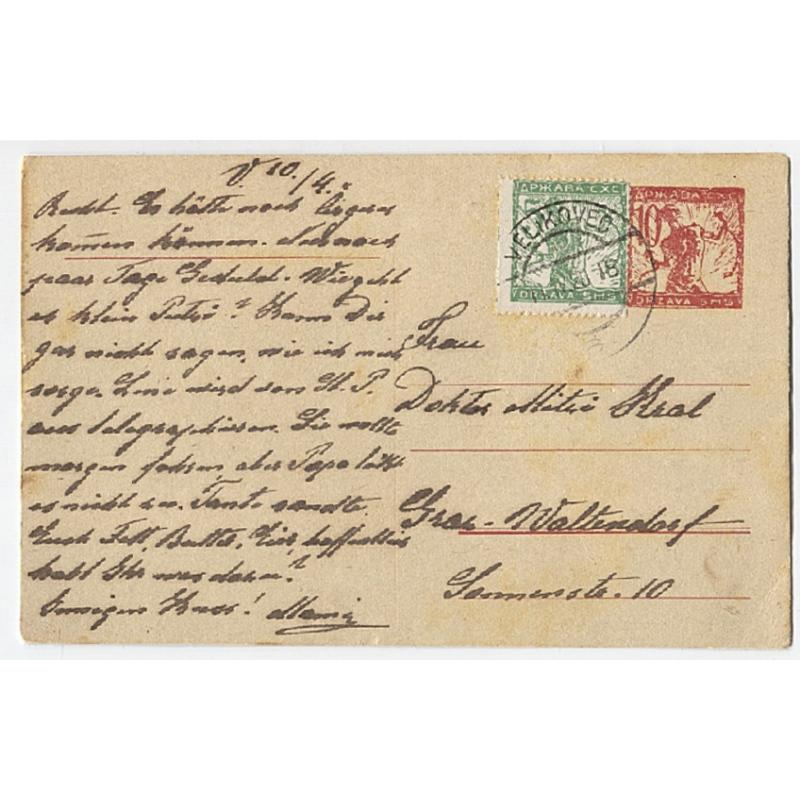 V. 10./4.
Recht. Es hätte noch ärger
kommen können. Nur noch
paar Tage Geduld. Wie geht
es klein Peter? Kann Dir
gar nicht sagen, wie ich mich
sorge. wird von St. P.
aus telegraphieren. Sie wollte
morgen fahren, aber Papa läßt
es nicht zu. Tante sandte
Euch Fett, Butter, Eier, hoffentlich
habt Ihr was davon?
Innigen Kuss! Mama
ДРЖАВА СХС
DRŽAVA SHS
VELIKOVEC
18
ДРЖАВА СХС
10
DRŽAVA SHS
Frau
Doktor Mitzi Kral
Graz-Waltendorf
Sonnenstr. 10